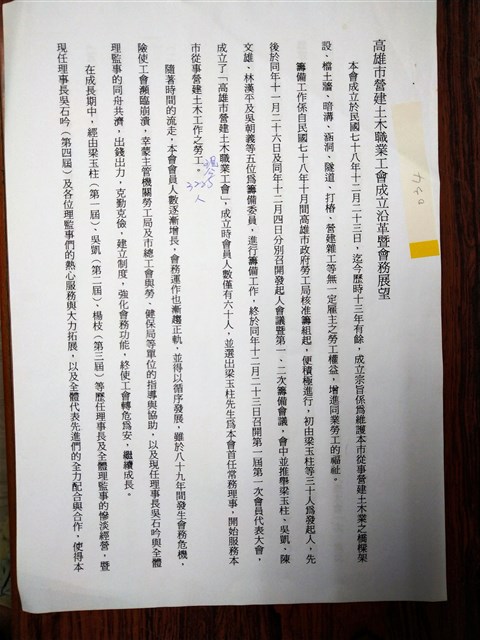 高雄市營建土木職業工會成立沿革暨會務展望
本會成立於民國七十八年十二月二十三日，迄今歷時十三年有餘，成立宗旨係為維護本市從事營建土木業之橋樑架
設、檔土牆、暗溝、涵洞、隧道、打樁、營建雜工等無一定雇主之勞工權益，增進同業勞工的福祉。
籌備工作係自民國七十八年十月間高雄市政府勞工局核准籌組起，便積極進行，初由梁玉柱等三十人為發起人，先
後於同年十一月二十六日及同年十二月四日分別召開發起人會議暨第一、二次籌備會議，會中並推舉梁玉柱、吳凱、陳
文雄、林漢平及吳朝義等五位為籌備委員，進行籌備工作，終於同年十二月二十三日召開第一屆第一次會員代表大會，
成立了「高雄市營建土木職業工會」，成立時會員人數僅有六十人，並選出梁玉柱先生為本會首任常務理事，開始服務本
市從事營建土木工作之勞工。
現今
3225
人
隨著時間的流走，本會會員人數逐漸增長，會務運作也漸趨正軌，並得以循序發展，雖於八十九年間發生會務危機，
險使工會瀕臨崩潰，幸蒙主管機關勞工局及市總工會與勞、健保局等單位的指導與協助，以及現任理事長吳石吟與全體
理監事的同舟共濟，出錢出力，克勤克儉，建立制度，強化會務功能，終使工會轉危為安，繼續成長。
在成長期中，經由梁玉柱（第一屆）、吳凱（第二屆）、楊枝（第三屆）等歷任理事長及全體理監事的慘淡經營，暨
現任理事長吳石吟（第四屆）及各位理監事們的熱心服務與大力拓展，以及全體代表先進們的全力配合與合作，使得本